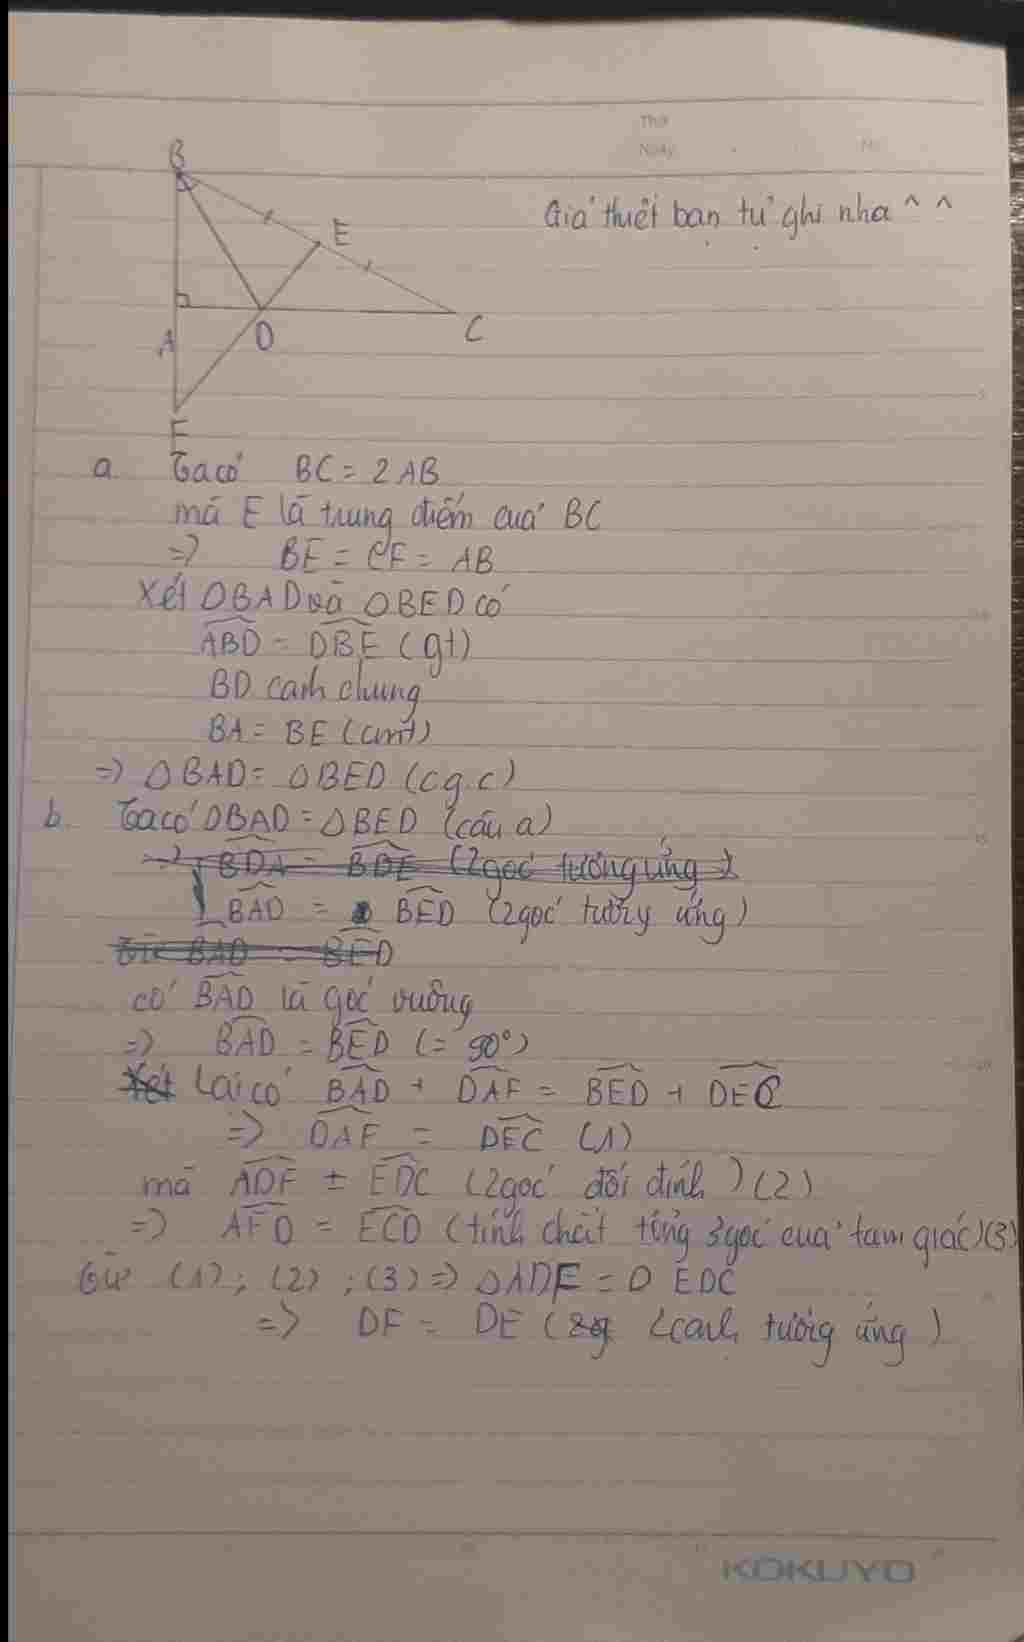 Thứ
Ngày
No
B
Giả thuết bạn tự ghi nha ^ ^
E
A
D
C
F
a. Ta có BC = 2 AB
mà E là trung điểm của BC
=> BE = CF = AB
Xét △BAD và △BED có
ABD = DBE (gt)
BD cạnh chung
BA = BE (cmt)
=> △BAD = △BED (c.g.c)
b. Ta có △BAD = △BED (câu a)
=> BDA = BDE (2 góc tương ứng)
BAD = BED (2 góc tương ứng)
BAD = BED
có BAD là góc vuông
=> BAD = BED (= 90°)
Xét Lại có BAD + DAF = BED + DEC
=> DAF = DEC (1)
mà ADF = EDC (2 góc đối đỉnh) (2)
=> AFD = ECD (tính chất tổng 3 góc của tam giác) (3)
Từ (1); (2); (3) => △ADF = △EDC
=> DF = DE (2 cạnh tương ứng)
KOKUYO